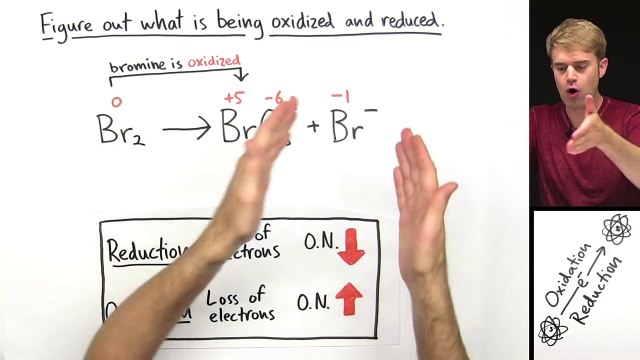 Figure out what is being oxidized and reduced.
bromine is oxidized
0 +5 -6 -1
Br₂ → Br + Br⁻
Reduction of electrons O.N.
Loss of electrons O.N.
Oxidation
e⁻
Reduction